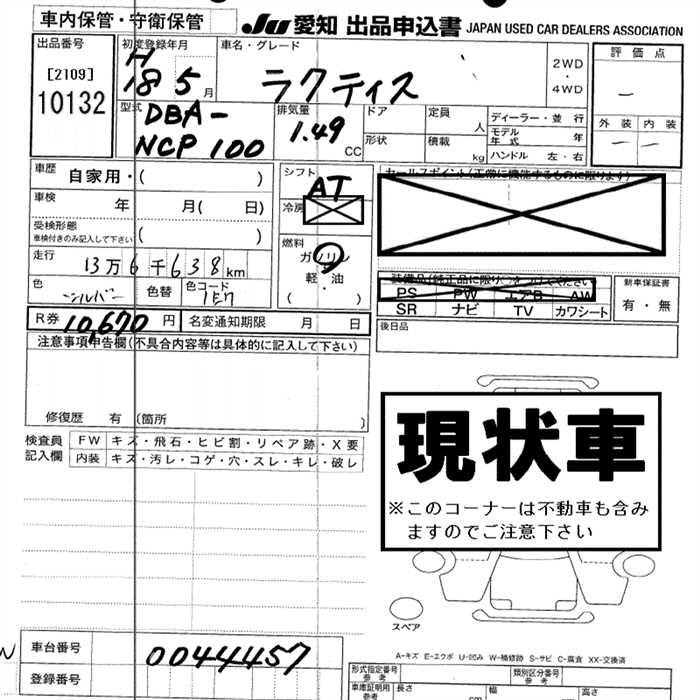 車内保管・守衛保管
JU 愛知 出品申込書 JAPAN USED CAR DEALERS ASSOCIATION
出品番号
[2109]
10132
初度登録年月
H
18 5 月
車名・グレード
ラクティス
2WD
・
4WD
評価点
—
外装 内装
— —
型式
DBA-
NCP100
排気量
1.49
CC
ドア
定員
人
形状
積載
kg
ディーラー・並行
モデル年式 年
ハンドル 左・右
車歴
自家用・( )
車検
年 月( 日)
受検形態
車検付きのみ記入して下さい
( )
走行
13万6千638km
色
シルバー
色替
色コード
1E7
シフト
AT
冷房
燃料
ガソリン
軽・油
( )
セールスポイント(正常に機能するものに限ります)
装備品(純正品に限り○をつけてください)
PS PW エアB AW
SR ナビ TV カワシート
新車保証書
有・無
R券 10,670 円
名変通知期限 月 日
後日品
注意事項申告欄(不具合内容等は具体的に記入して下さい)
修復歴 有 (箇所 )
検査員記入欄
FW キズ・飛石・ヒビ割・リペア跡・X要
内装 キズ・汚レ・コゲ・穴・スレ・キレ・破レ
現状車
※このコーナーは不動車も含みますのでご注意下さい
スペア
A-キズ E-エクボ U-凹み W-補修跡 S-サビ C-腐食 XX-交換済
車台番号
0044457
登録番号
形式指定番号
参考
類別区分番号
参考
車庫証明用
参考
長さ
幅
高さ